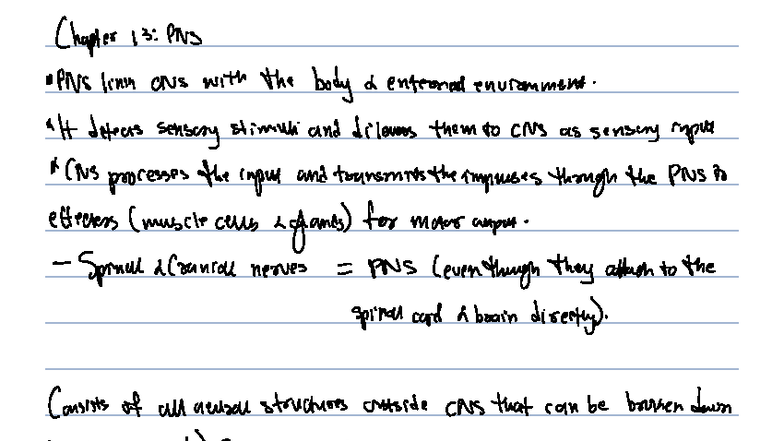 Chapter 13: PNS
•PNS link CNS with the body & external environment.
*It detects sensory stimuli and delivers them to CNS as sensory input
*CNS processes the input and transmits the impulses through the PNS to
effectors (muscle cells & glands) for motor output.
— Spinal & Cranial nerves = PNS (even though they attach to the
spinal cord & brain directly).
Consists of all neural structures outside CNS that can be broken down